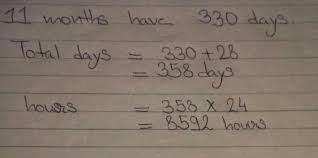 11 months have 330 days.
Total days = 330 + 28
= 358 days
hours = 358 × 24
= 8592 hours